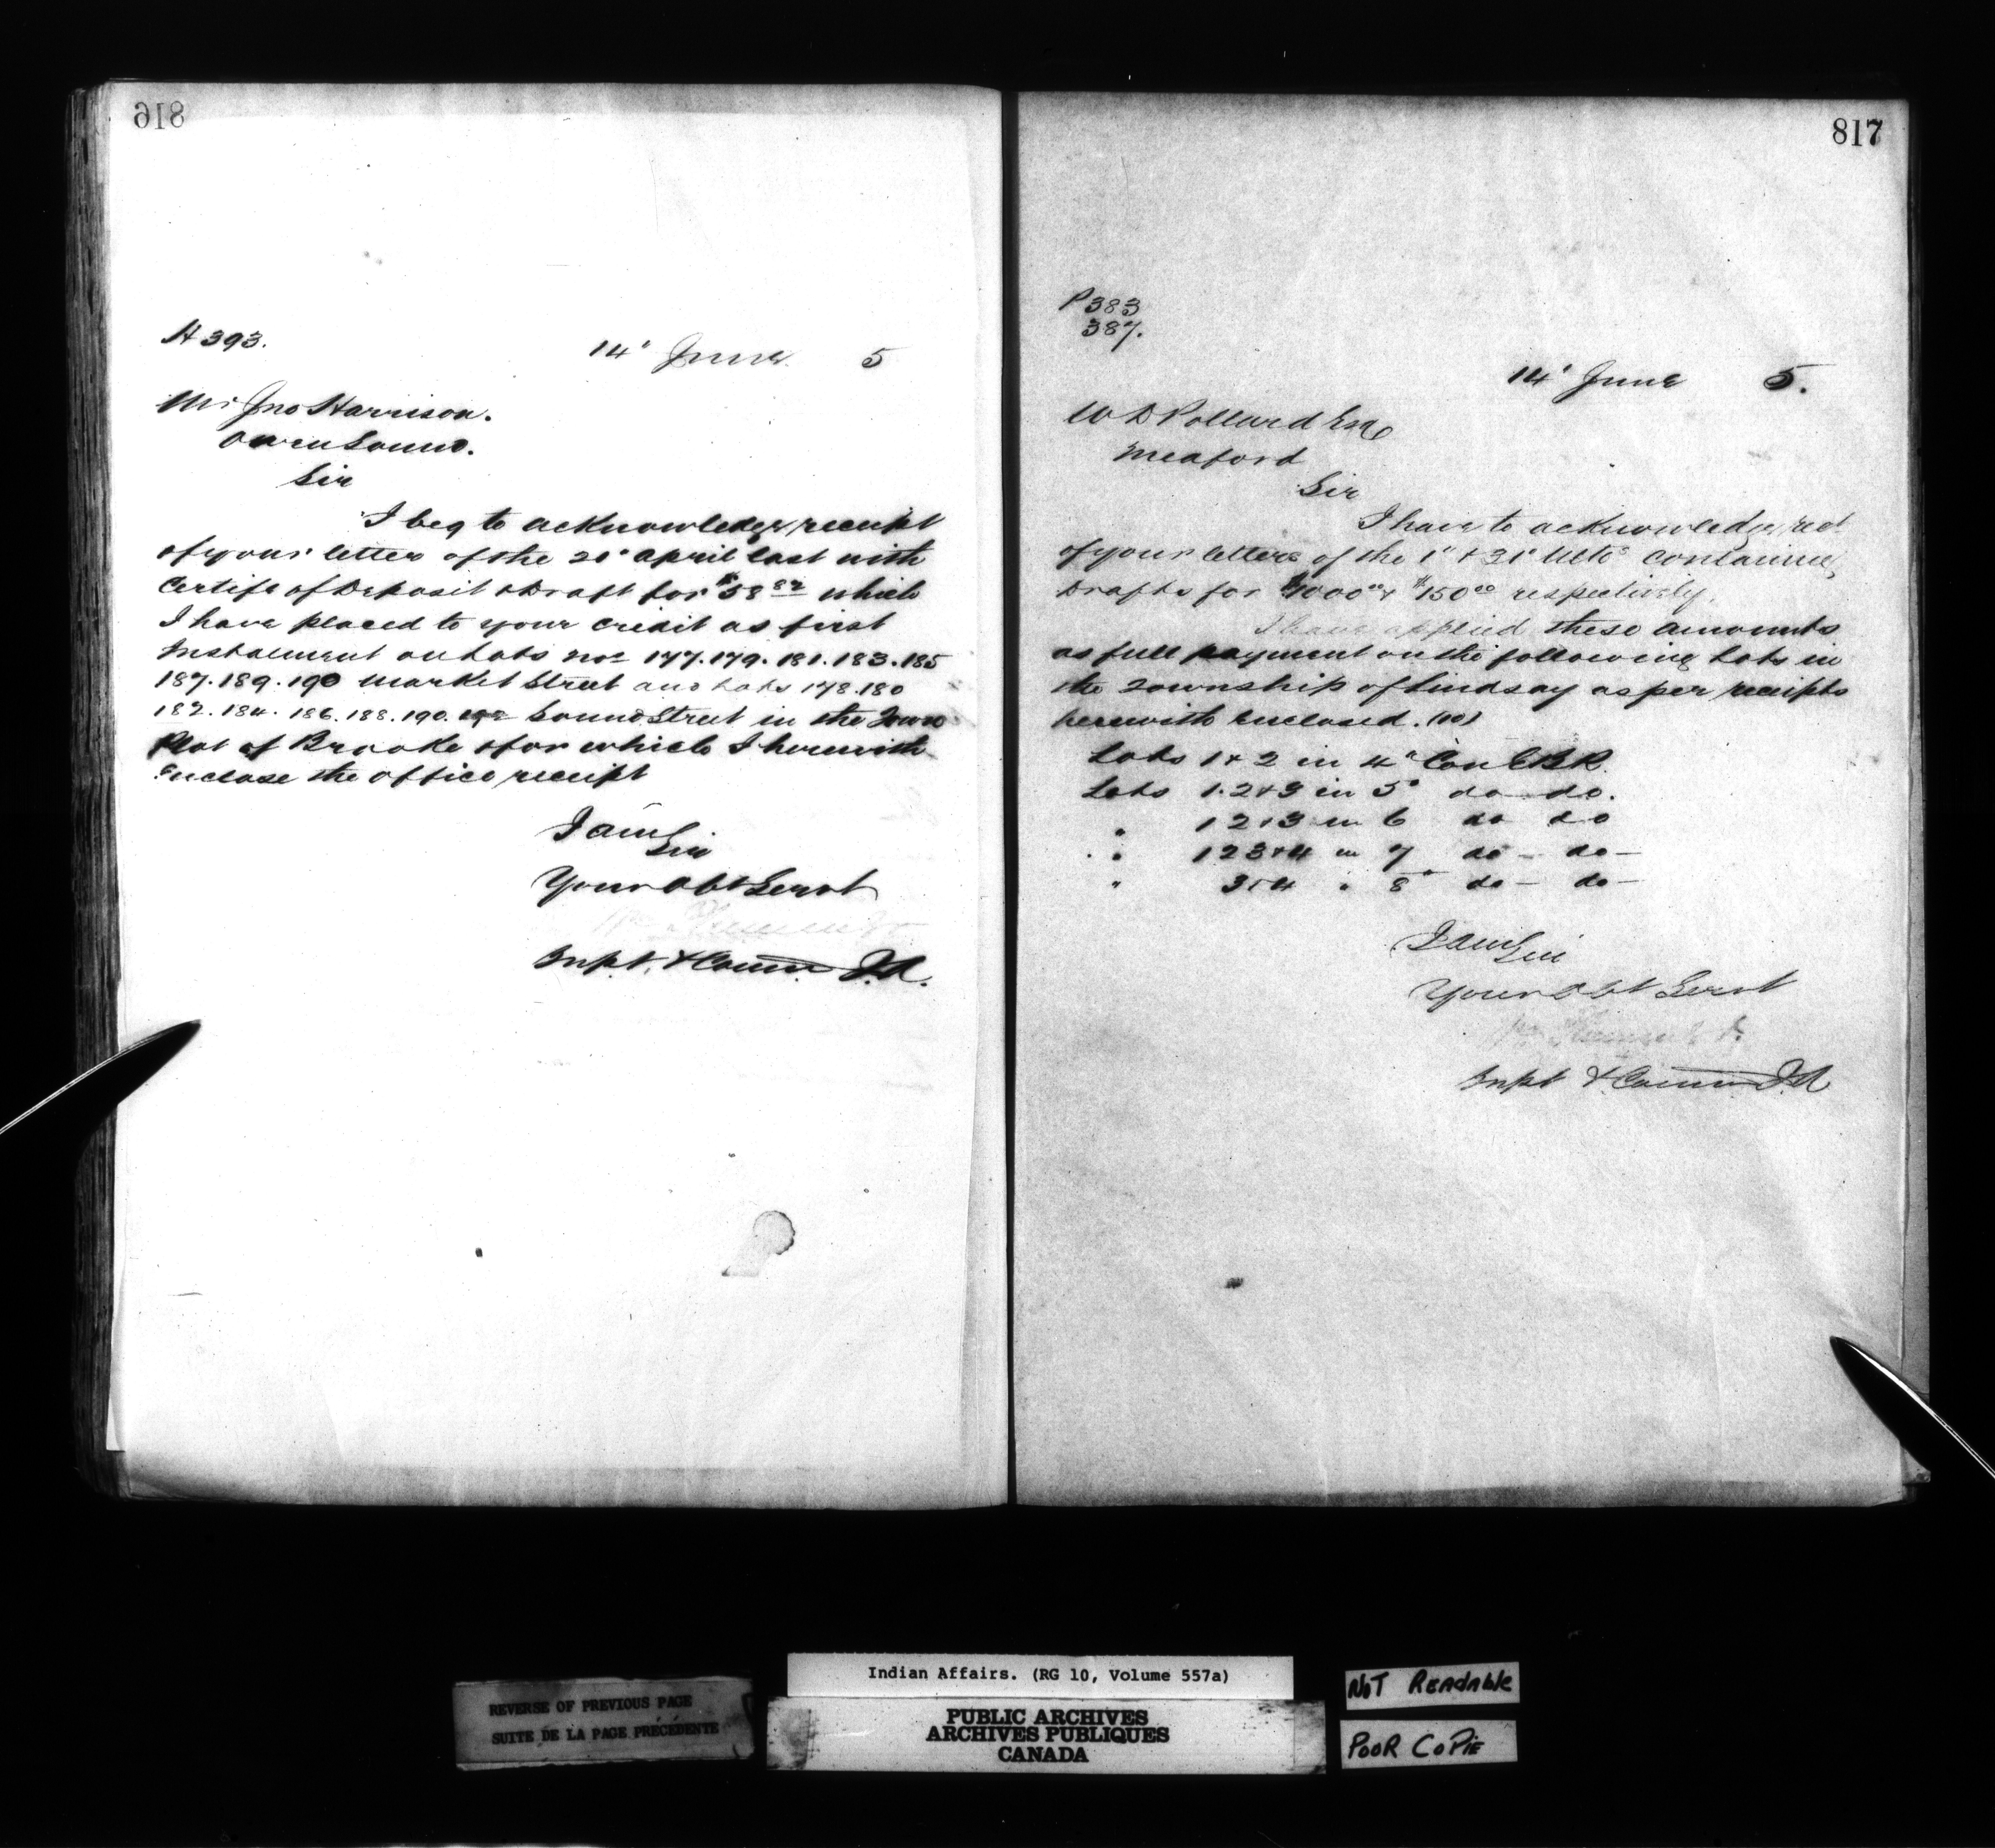 816
H 393.
14" June. 5
Mr Jno Harrison.
Owen Sound.
Sir
I beg to acknowledge receipt
of your letter of the 20" April last with
Certife of Deposit & Draft for $58 which
I have placed to your credit as first
Instalment on Lots nos 177. 179. 181. 183. 185
187. 189. 190 Market Street and Lots 178. 180
182. 184. 186. 188. 190. 192 Sound Street in the Town
Plot of Brooke & for which I herewith
Enclose the office receipt
I am
Sir
Your Obt Servt
Supt. & Comm. I.A.
817
P 383
387.
14' June 5.
W D Pollard Esq
Meaford
Sir
I have to acknowledge, rect
of your letters of the 1" & 31' Ulto containing
Drafts for $1000 00 & $150 00 respectively.
I have applied these amounts
as full payment on the following Lots in
the Township of Lindsay as per receipts
herewith enclosed. (10)
Lots 1 & 2 in 4" Con E B R.
Lots 1. 2 & 3 in 5" do do.
" 1 2 & 3 in 6 do do
" 1 2 3 & 4 in 7 do - do -
" 3 & 4 " 8" do - do -
I am
Sir
Your Obt Servt
Supt & Comm I.A
Indian Affairs. (RG 10, Volume 557a)
REVERSE OF PREVIOUS PAGE
SUITE DE LA PAGE PRÉCÉDENTE
PUBLIC ARCHIVES
ARCHIVES PUBLIQUES
CANADA
NOT READABLE
POOR COPIE